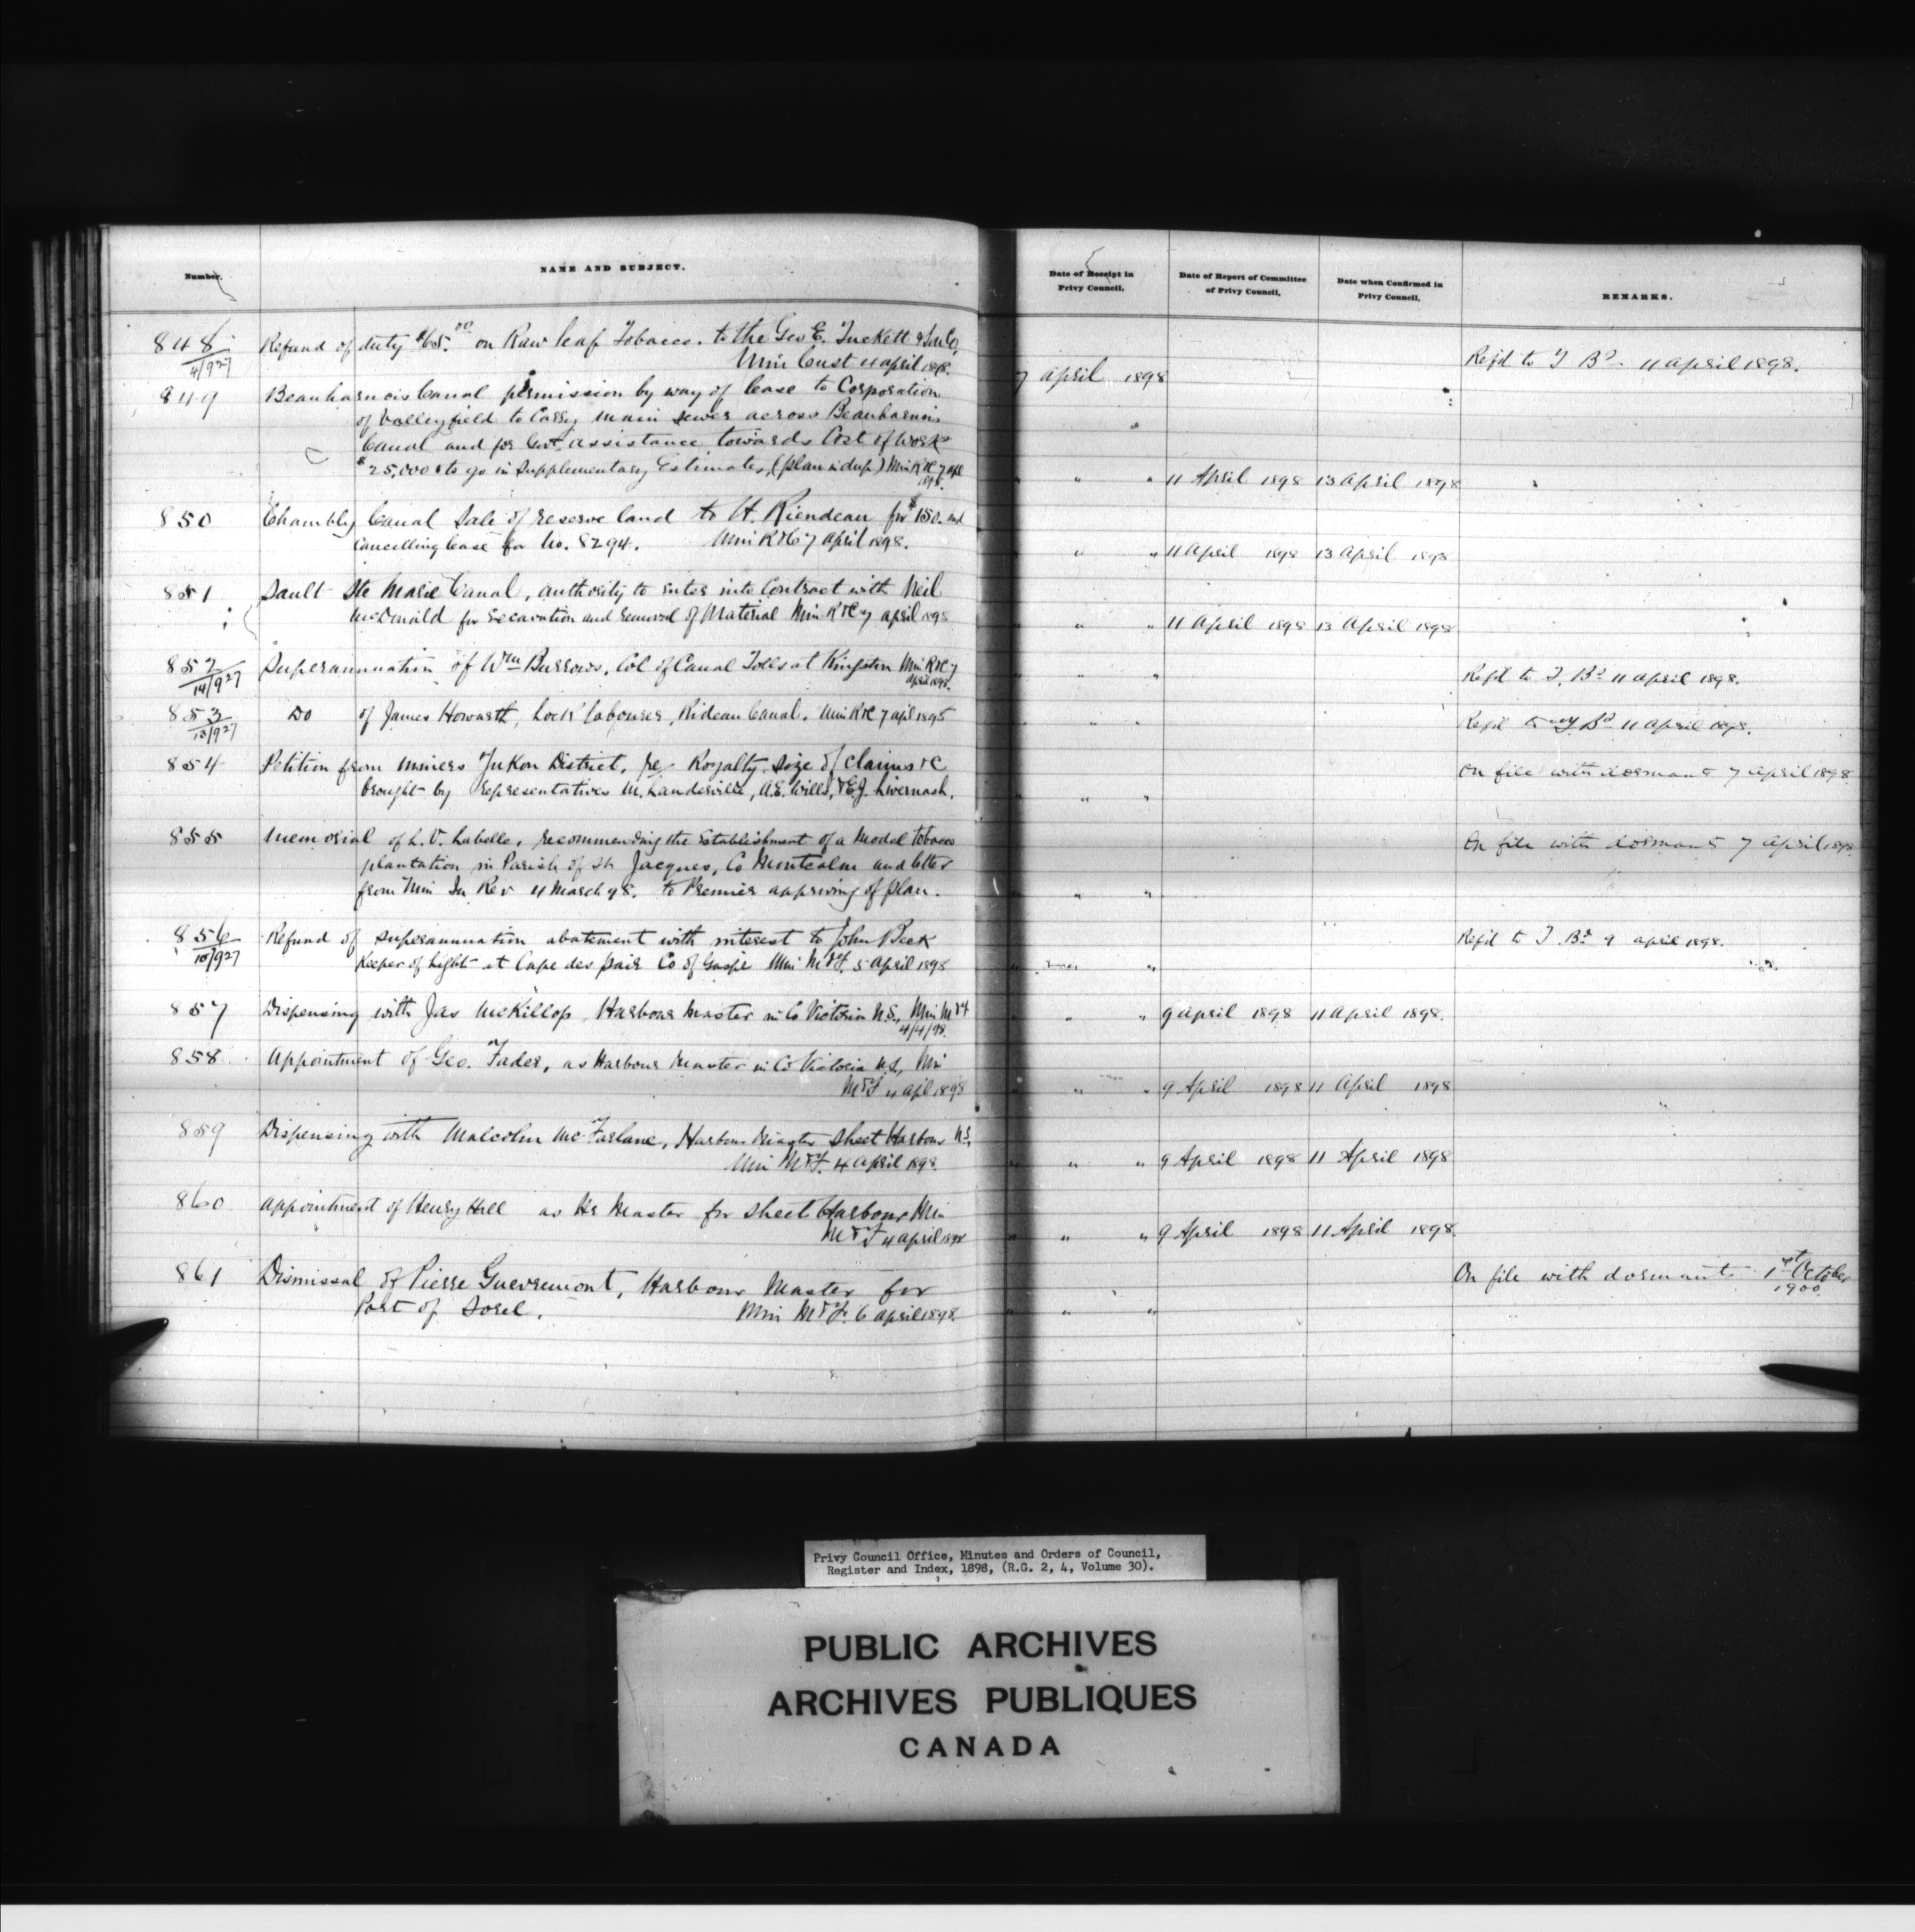 Number.
NAME AND SUBJECT.
Date of Receipt in Privy Council.
Date of Report of Committee of Privy Council.
Date when Confirmed in Privy Council.
REMARKS.
848 Refund of duty $65.00 on Raw leaf Tobacco. to the Geo E. Tuckett & Son Co,
4/927 Min Cust 4 april 1898. 7 april 1898 Refd to T Bd 11 april 1898.
849 Beauharnois Canal permission by way of lease to Corporation
of Valleyfield to Carry main sewer across Beauharnois
Canal and for Govt assistance towards Cost of Work
$25,000 to go in Supplementary Estimates, (plan in dup) Min R&C 7 apl
1898. " " " 11 April 1898 13 April 1898
850 Chambly Canal Sale of reserve land to H. Riendeau for $150. and
Cancelling lease for No. 8294. Min R&C 7 April 1898. " " 11 April 1898 13 April 1898
851 Sault Ste Marie Canal, authority to enter into Contract with Neil
McDonald for excavation and removal of Material Min R&C 7 april 1898 " " 11 April 1898 13 April 1898
852 Superannuation of Wm Burrows, Col of Canal Tolls at Kingston Min R&C 7
14/927 april 1898. " " " Refd to T. Bd 11 april 1898.
853 Do of James Howarth, Lock labourer, Rideau Canal. Min R&C 7 apil 1898
13/927 " " " Refd to T Bd 11 april 1898.
854 Petition from miners Yukon District, re Royalty, size of claims &c
brought by representatives M. Landerville, A.E. Wills, & E.J. Livernash. " " " On file with dormants 7 april 1898
855 Memorial of L.V. Labelle, recommending the Establishment of a Model tobacco
plantation in Parish of St Jacques, Co Montcalm and letter
from Min In Rev 4 March 98. to Premier approving of plan. " " " On file with dormants 7 april 1898
856 Refund of superannuation abatement with interest to John Beck
10/927 Keeper of Light at Cape des Pair Co of Gaspé Min M&F. 5 April 1898 " " Refd to T. Bd 9 april 1898.
857 Dispensing with Jas McKillop, Harbour Master in Co Victoria N.S., Min M&F
4/4/98. " " 9 april 1898 11 april 1898.
858 Appointment of Geo. Fader, as Harbour Master in Co Victoria N.S, Min
M&F 4 apl 1898 " " " 9 April 1898 11 April 1898
859 Dispensing with Malcolm McFarlane, Harbour Master Sheet Harbour N.S,
Min M&F. 4 april 1898. " " " 9 April 1898 11 April 1898
860 appointment of Henry Hall as Hr Master for Sheet Harbour Min
M&F 4 april 1898 " " " 9 April 1898 11 April 1898.
861 Dismissal of Pierre Guevremont, Harbour Master for
Port of Sorel. Min M&F. 6 april 1898. " " " On file with dormants 1st October
1900.
Privy Council Office, Minutes and Orders of Council,
Register and Index, 1898, (R.G. 2, 4, Volume 30).
PUBLIC ARCHIVES
ARCHIVES PUBLIQUES
CANADA